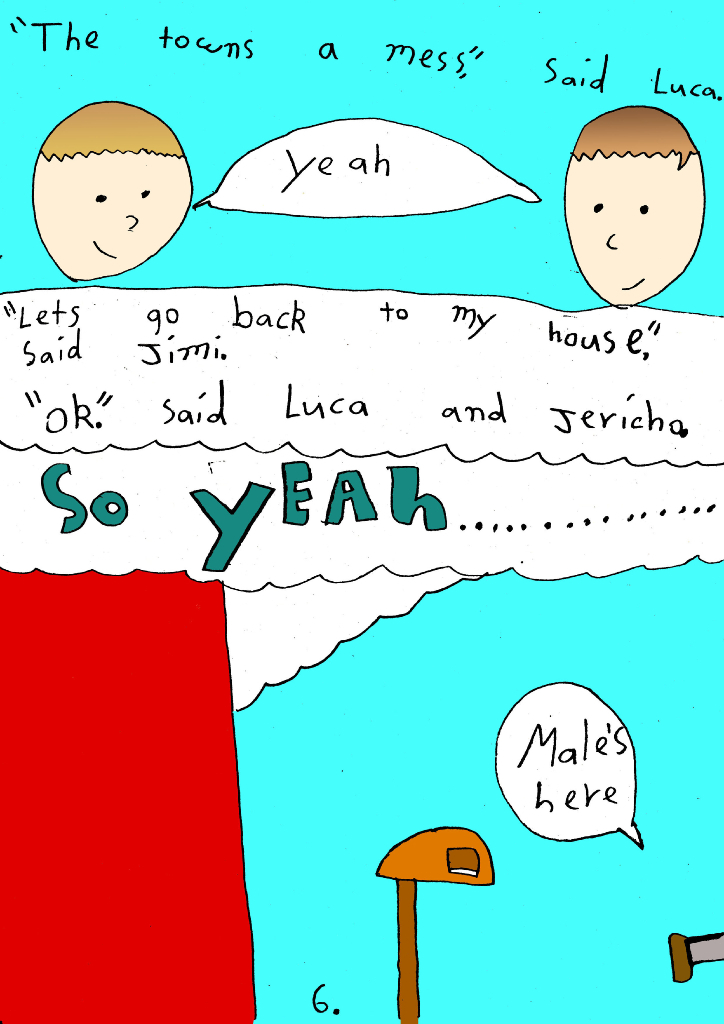 "The towns a mess," said Luca.
yeah
"Lets go back to my house,"
said Jimi.
"ok." said Luca and Jericho.
So YEAh...............
Male's
here
6.